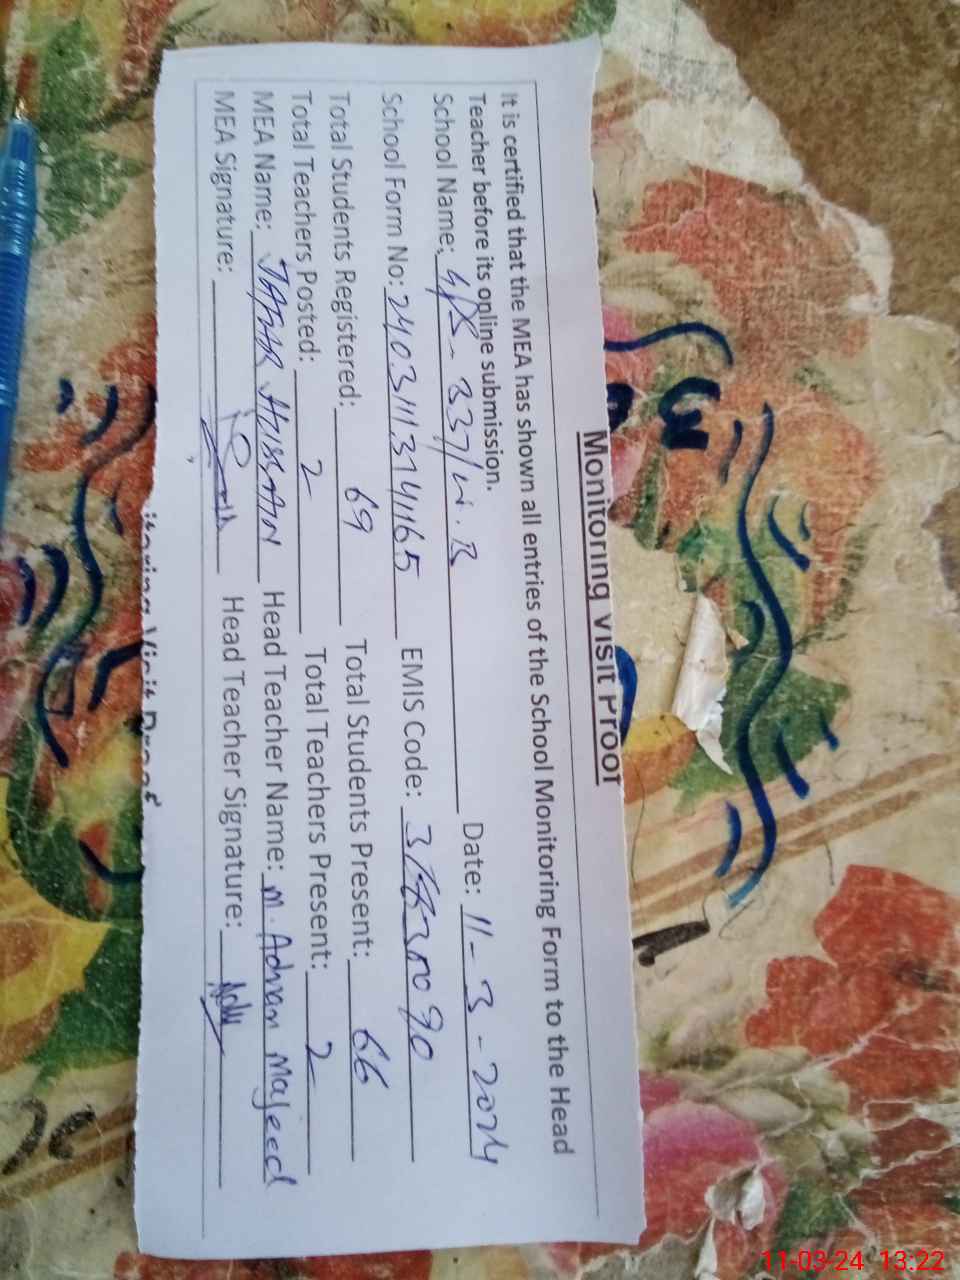 Monitoring Visit Proof
It is certified that the MEA has shown all entries of the School Monitoring Form to the Head
Teacher before its online submission.
School Name: GPS - 337/W.B Date: 11-3-2024
School Form No: 24031113141165 EMIS Code:
Total Students Registered: 69 Total Students Present: 66
Total Teachers Posted: 2 Total Teachers Present: 2
MEA Name: JAFAR HUSSAIN Head Teacher Name: M. Adnan Majeed
MEA Signature: Head Teacher Signature:
itoring Visit Proof
11-03-24 13:22